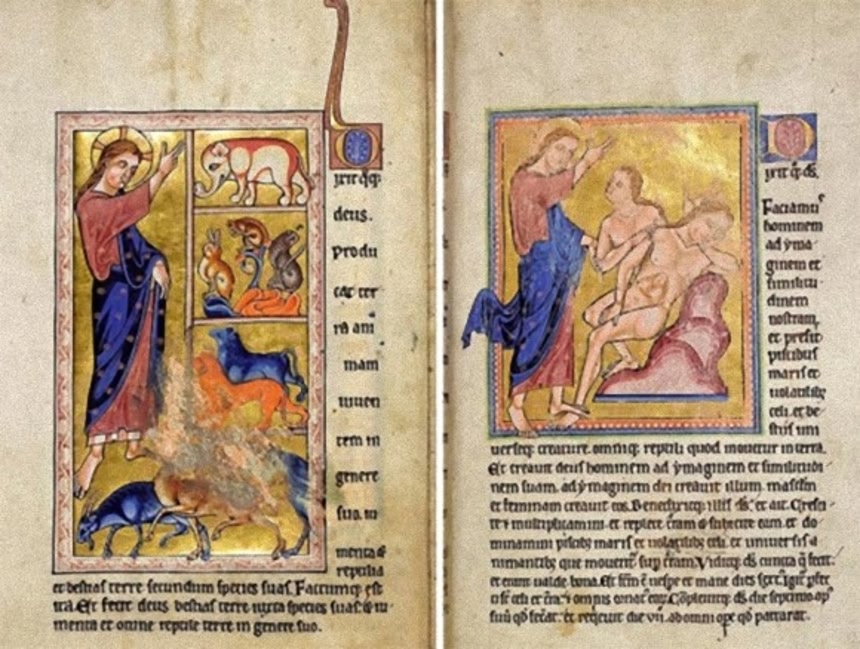 Dixit q̄q̄
deus.
Produ
cat ter
ra ani
mam
uiuen
tem in
genere
suo. iu
menta &
reptilia
et bestias terre secundum species suas. Factumq; est
ita. Et fecit deus bestias terre iuxta species suas. & iu-
menta et omne reptile terre in genere suo.
Dixit q̄. d̄s.
Faciamus
hominem
ad yma-
ginem et
similitu
dinem
nostram.
et presit
piscibus
maris et
uolatilib;
celi. et be-
stiis uni
uerseq; creature. omniq; reptili quod mouetur in terra.
Et creauit deus hominem ad ymaginem et similitudi-
nem suam. ad ymaginem dei creauit illum. masclm̄
et feminam creauit eos. Benedixitq; illis d̄s. et ait. Cresci-
te ⁊ multiplicamini. et replete t̄ram & subicite eam. et do-
minamini piscib; maris et uolatilib; celi. et uniuersis a
nimantib; que mouent̄ sup̄ t̄ram. Viditq; d̄s cuncta q̄ fecit.
et erant ualde bona. Est f̄c̄m ē uespe et mane dies sext'. Igit̄ p̄fec
ti s̄t celi et t̄ra ⁊ omnis ornat' eoꝝ. Cōpleuitq; d̄s die septimo op'
suū qd̄ fec̄at. et requieuit die vii. ab omni ope qd̄ patrarat.